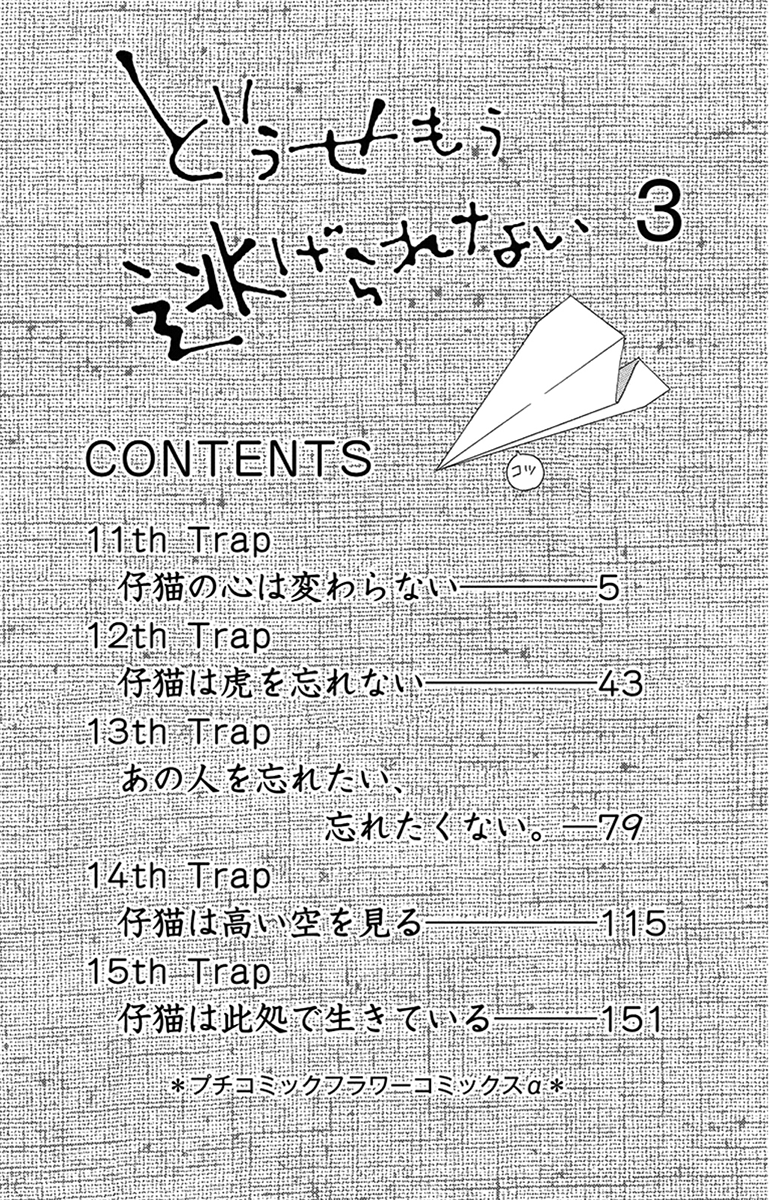 どうせもう
逃げられない 3
コツ
CONTENTS
11th Trap
仔猫の心は変わらない――――5
12th Trap
仔猫は虎を忘れない―――――43
13th Trap
あの人を忘れたい、
忘れたくない。―79
14th Trap
仔猫は高い空を見る―――――115
15th Trap
仔猫は此処で生きている―――151
＊プチコミックフラワーコミックスα＊